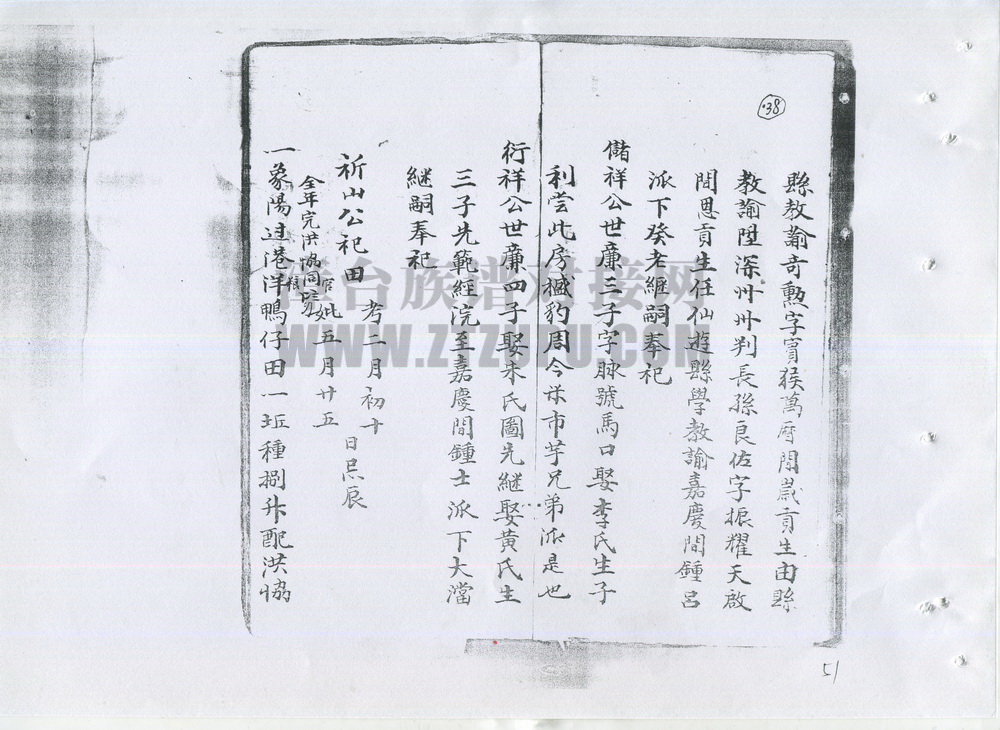 38
縣教諭奇勳字賓猴萬曆間歲貢生由縣
教諭陞深州州判長孫良佐字振耀天啟
間恩貢生任仙遊縣學教諭嘉慶間鍾呂
派下癸老繼嗣奉祀
儲祥公世廉三子字脉號馬口娶李氏生子
利嘗此房樾豹周今栄市芋兄弟派是也
衍祥公世廉四子娶宋氏圖先繼娶黃氏生
三子先範經浣至嘉慶間鍾士派下大澢
継嗣奉祀
祈山公祀田
考二月初十
妣五月廿五
日忌辰
全年完洪協同
一象陽迌港洋鴨仔田一坵種捌升配洪協
51
雁台族譜对接网
WWW.ZTZUPU.COM